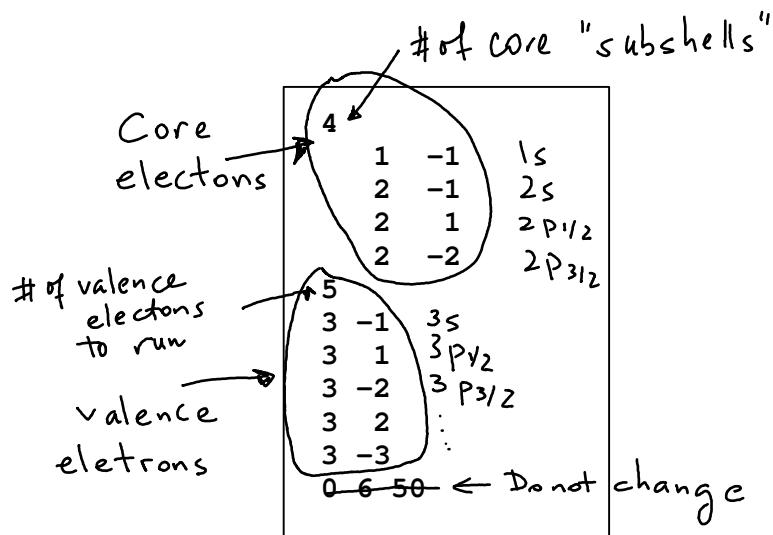 # of core "subshells"
4
Core
electons
1 -1 1s
2 -1 2s
2 1 2p1/2
2 -2 2p3/2
# of valence
electons
to run
5
3 -1 3s
3 1 3p1/2
3 -2 3p3/2
3 2
3 -3
valence
eletrons
0 6 50 ← Do not change